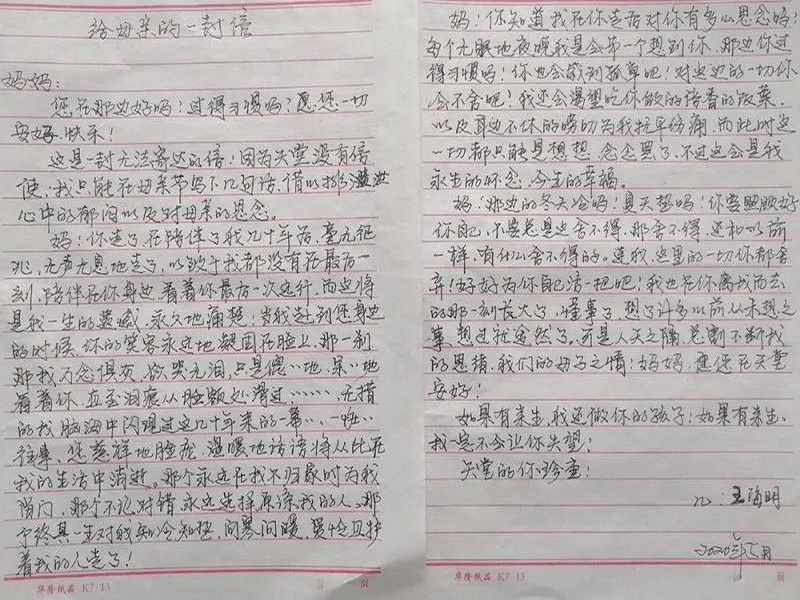 给母亲的一封信
妈妈：
您在那边好吗！过得习惯吗？愿您一切
安好、快乐！
这是一封无法寄达的信！因为天堂没有信
使，我只能在母亲节写下几句话，借以排遣
心中的郁闷以及对母亲的思念。
妈！你走了，在陪伴了我几十年后，毫无征
兆，无声无息地走了，以致于我都没有在最后一
刻，陪伴在你身边，看着你最后一次远行，而这将
是我一生的遗憾，永久地痛楚！当我赶到您身边
的时候，你的笑容永远地凝固在脸上，那一刹
那我万念俱灰，欲哭无泪，只是傻…地，呆…地
看着你，直至泪痕从脸颊处滑过……，无措
的我脑海中闪现过这几十年来的一幕…一帧…
往事，您慈祥地脸庞，温暖地话语将从此在
我的生活中消逝。那个永远在我不归家时为我
留门，那个不论对错，永远选择原谅我的人、那
个终其一生对我知冷知热，问寒问暖，
着我的人走了！
华隆纸品 K7/13 页
妈！你知道我在你走后对你有多么思念吗！
每个无眠地夜晚我是会第一个想到你，那边你过
得习惯吗！你也会感到孤单吧！对这边的一切你
会不舍吧！我还会渴望吃你做的喷香的饭菜，
以及耳边不休的唠叨为我抚平伤痛，而此时这
一切都只能是想想，念念罢了，不过这会是我
永生的怀念，今生的幸福。
妈！那边的冬天冷吗！夏天热吗！你要照顾好
你自己，不要老是这舍不得，那舍不得，还和以前
一样，有什么舍不得的。连我，这里的一切你都舍
弃！好好为你自己活一把吧！我也在你离我而去
的那一刻长大了，懂事了，想了许多以前从未想之
事，想过就释然了。可是人天之隔，总割不断我
的思绪，我们的母子之情！妈妈，愿您在天堂
安好！
如果有来生，我还做你的孩子！如果有来生，
我一定不会让你失望！
天堂的你珍重！
儿：王海明
2020年5月
华隆纸品 K7/13 页